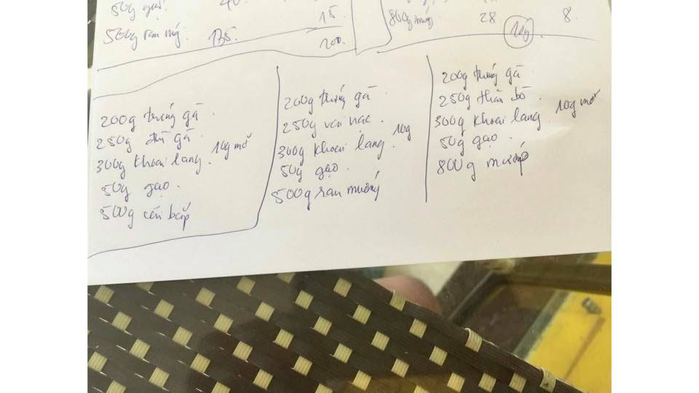 50g gạo.
500g rau muống 175. 15
200.
800g mướp 28 109. 8.
200g trứng gà.
250g đùi gà.
300g khoai lang. 10g mỡ
50g gạo.
500g cải bắp
200g trứng gà.
250g vai nạc.
300g khoai lang. 10g
50g gạo.
500g rau muống
200g trứng gà.
250g thăn bò.
300g khoai lang. 10g mỡ
50g gạo.
800g mướp